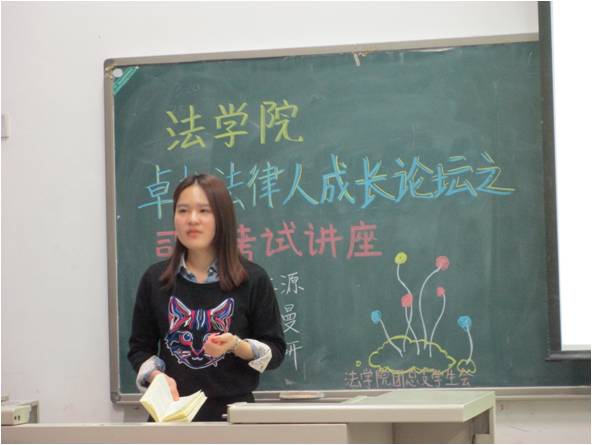 法学院
卓越法律人成长论坛之
司 考试讲座
源
曼
法学院团总支学生会